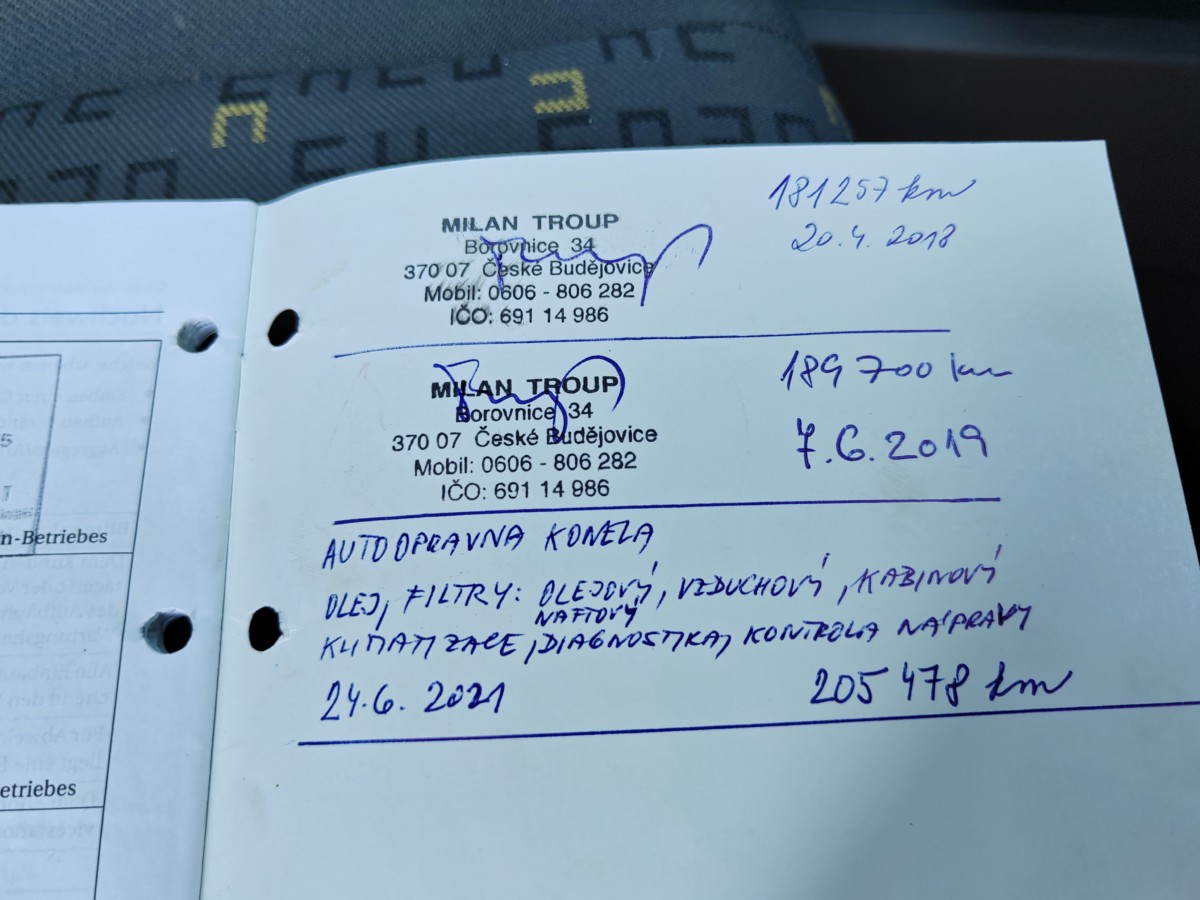 MILAN TROUP
Borovnice 34
370 07 České Budějovice
Mobil: 0606 - 806 282
IČO: 691 14 986
181257 km
20.4. 2018
MILAN TROUP
Borovnice 34
370 07 České Budějovice
Mobil: 0606 - 806 282
IČO: 691 14 986
189 700 km
7.6.2019
AUTOOPRAVNA KONEZA
OLEJ, FILTRY: OLEJOVÝ, VZDUCHOVÝ, KABINOVÝ
NAFTOVÝ
KLIMATIZACE, DIAGNOSTIKA, KONTROLA NÁPRAVY
24.6. 2021
205 478 km
n-Betriebes
etriebes